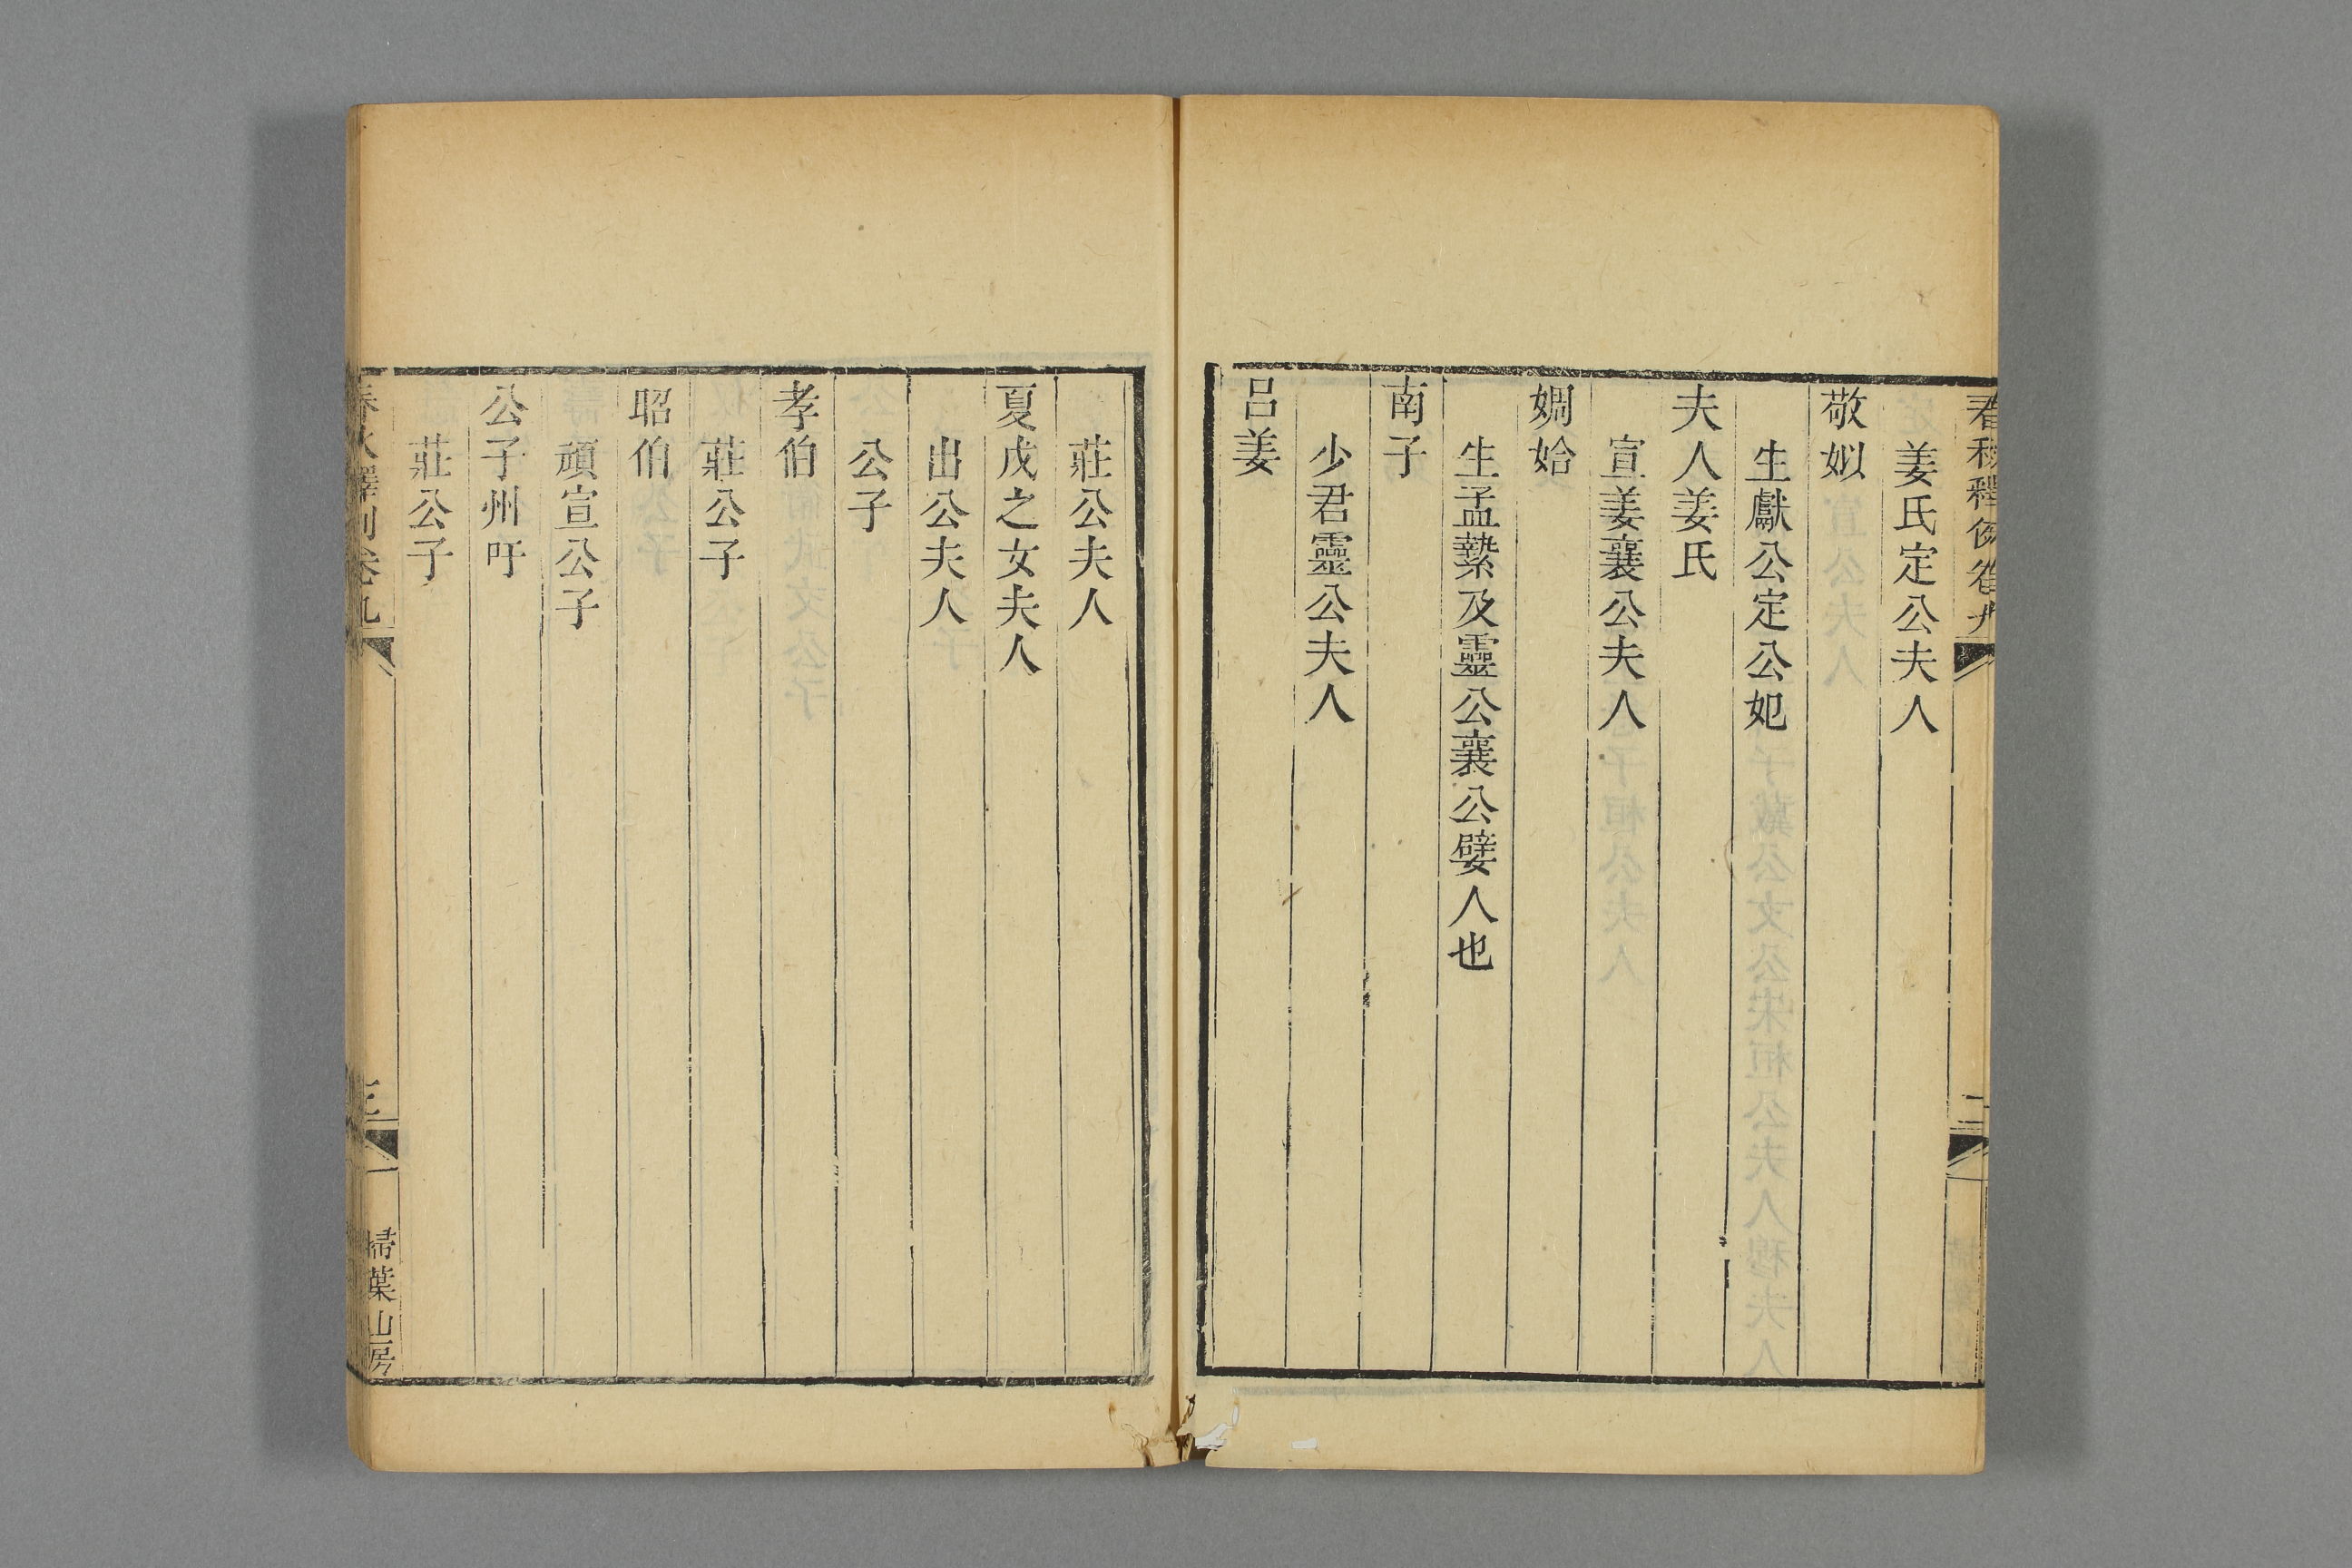 春秋釋例卷九
二
姜氏定公夫人
敬姒
生獻公定公妃
夫人姜氏
宣姜襄公夫人
婤姶
生孟縶及靈公襄公嬖人也
南子
少君靈公夫人
呂姜
莊公夫人
夏戊之女夫人
出公夫人
公子
孝伯
莊公子
昭伯
頑宣公子
公子州吁
莊公子
春秋釋例卷九
三
掃葉山房